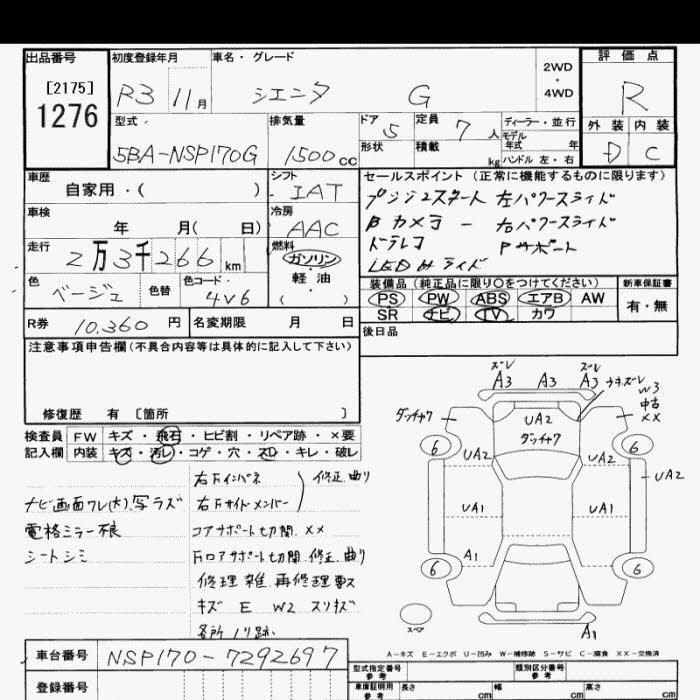 出品番号 初度登録年月 車名・グレード 2WD・4WD 評価点
[2175]
1276 R3 11月 シエンタ G R
型式 排気量 ドア 定員 ディーラー・並行 外装 内装
5BA-NSP170G 1500cc 5 7人 モデル年式 年 D C
形状 積載 kg ハンドル 左・右
車歴 シフト セールスポイント(正常に機能するものに限ります)
自家用・( ) IAT プッシュスタート 左パワースライド
車検 冷房 Bカメラ 右パワースライド
年 月( 日) AAC ドラレコ Pサポート
走行 燃料 LEDライト
2万3千266km ガソリン・軽油・( )
色 色替 色コード 装備品(純正品に限り○をつけてください) 新車保証書
ベージュ 4V6 PS PW ABS エアB AW 有・無
SR ナビ TV カワ
R券 10,360円 名変期限 月 日 後日品
注意事項申告欄(不具合内容等は具体的に記入して下さい)
修復歴 有 [箇所 ]
検査員 FW キズ・飛石・ヒビ割・リペア跡・×要
記入欄 内装 キズ・汚レ・コゲ・穴・スレ・キレ・破レ
右Fインパネ 修正 曲り
ナビ画面ワレ(大)写ラズ 右Fサイドメンバー
電格ミラー不良 コアサポート切開 XX
シートシミ 修正 曲り
修理雑 再修理要ス
キズ E W2 スリキズ
各所ノリ跡
ズレ ズレ
A3 A3 A3 W3
中古
XX
UA2
UA2 UA2 UA2
6 6
UA1 UA1
A1
6 6
スペア A1
A-キズ E-エクボ U-凹み W-補修跡 S-サビ C-腐食 XX-交換済
車台番号 NSP170-7292697
型式指定番号 参考 類別区分番号 参考
登録番号 車庫証明用 参考 長さ cm 幅 cm 高さ cm